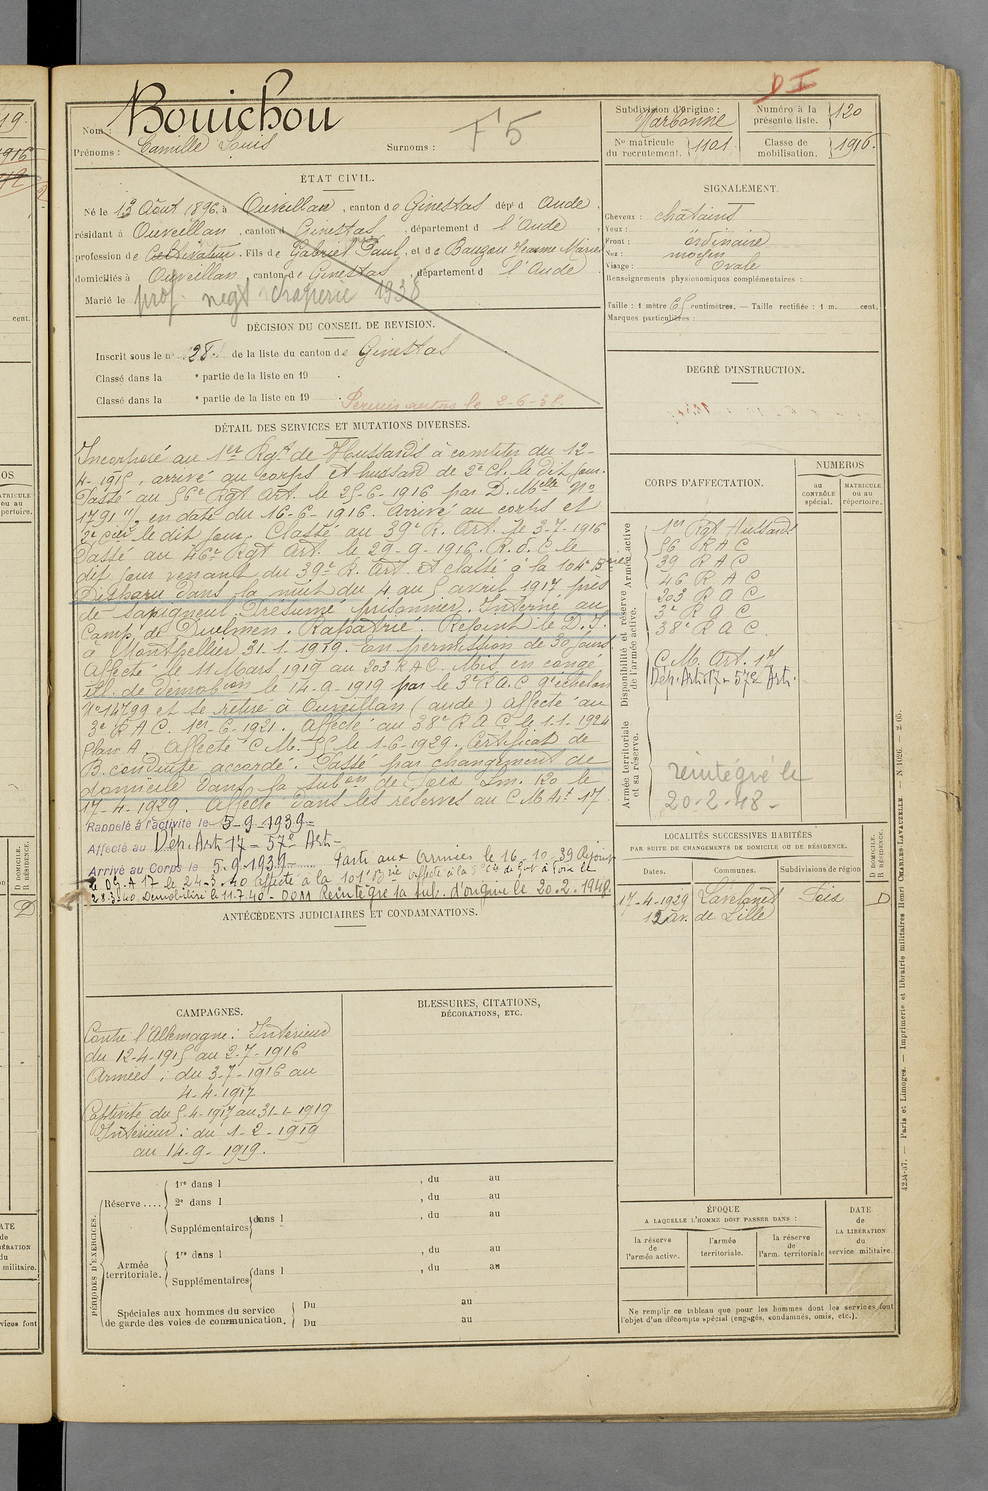 D I
Nom : Bouichou
Prénoms : Camille Louis Surnoms : F5
Subdivision d'origine : Narbonne
Numéro à la présente liste. 120
No matricule du recrutement. 1101
Classe de mobilisation. 1916.
ÉTAT CIVIL.
Né le 13 Août 1896. à Ouveillan, canton de Ginestas dépt d Aude,
résidant à Ouveillan, canton d Ginestas, département d l'Aude,
profession de Cultivateur. Fils de Gabriel Paul, et de Jeanne Marie
domiciliés à Ouveillan, canton de Ginestas, département d l'Aude
Marié le prof. negt 1938
DÉCISION DU CONSEIL DE REVISION.
Inscrit sous le no 28. de la liste du canton de Ginestas
Classé dans la e partie de la liste en 19 .
Classé dans la e partie de la liste en 19 . Permis le 2-6-38.
SIGNALEMENT.
Cheveux : châtains
Yeux :
Front : ordinaire
Nez : moyen
Visage : Ovale
Renseignements physionomiques complémentaires :
Taille : 1 mètre 65 centimètres. — Taille rectifiée : 1 m. cent.
Marques particulières :
DEGRÉ D'INSTRUCTION.
DÉTAIL DES SERVICES ET MUTATIONS DIVERSES.
Incorporé au 1er Rgt de Hussards à compter du 12-
4-1915, arrivé au corps et hussard de 2e Cl. le dit jour.
Passé au 56e Rgt Art. le 25-6-1916 par D. Melle No
1791 11/2 en date du 16-6-1916. Arrivé au corps et
le dit jour. Classé au 39e R. Art. le 3-7-1916
Passé au 46e Rgt Art. le 29-9-1916. R.d.C le
dit jour venant du 39e R. Art. et classé à la 104e Brie
Disparu dans la nuit du 4 au 5 avril 1917 près
de Sapigneul Présumé prisonnier. Interné au
Camp de Dulmen. Rapatrié. Rejoint le D.I.
à Montpellier 31-1-1919. En permission de 30 jours.
Affecté le 11 Mars 1919 au 203 R A C. Mis en congé
ill. de démobion le 14-9-1919 par le 3e R.A.C 9e échelon
No 14799 et se retire à Ouveillan (aude) Affecté au
3e R A C. 1er-6-1921. Affecté au 38e R A C le 1.1.1924
Plan A. Affecté C. M. le 1-6-1929. Certificat de
B. conduite accordé. Passé par changement de
domicile dans la subon de Foix Lm. 120 le
17-4-1929. Affecté dans les réserves au C M Art 17.
Rappelé à l'activité le 5-9-1939
Affecté au Dép. Art 17 - 57e Art.
Arrivé au Corps le 5.9.1939 Parti aux Armées le 16.10.39 Rejoint
le D A 17 le 24-3-40 Affecté à la 101e Brie affecté à la à Foix le
28.3.40 Démobilisé le 11.7.40 - Réintègre la sub. d'origine le 20.2.1948.
CORPS D'AFFECTATION.
NUMEROS
au CONTRÔLE spécial.
MATRICULE ou au répertoire.
Disponibilité et réserve de l'armée active.
Armée active
Armée territoriale et sa réserve.
1er Rgt Hussards
56 R A C
39 R A C
46 R A C
203 R A C
3e R A C
38e R A C.
C. M. Art. 17
Dép. Art 17 - 57e Art.
réintégré le
20-2-48-
LOCALITÉS SUCCESSIVES HABITÉES
PAR SUITE DE CHANGEMENTS DE DOMICILE OU DE RÉSIDENCE.
Dates. Communes. Subdivisions de région D DOMICILE. R RÉSIDENCE.
17-4-1929 Lavelanet Foix D
12 de Lille
ANTÉCÉDENTS JUDICIAIRES ET CONDAMNATIONS.
CAMPAGNES.
Contre l'Allemagne : Intérieur
du 12-4-1915 au 2-7-1916
Armées : du 3-7-1916 au
4-4-1917
Captivité du 5-4-1917 au 31-1-1919
Intérieur : du 1-2-1919
au 14-9-1919.
BLESSURES, CITATIONS,
DÉCORATIONS, ETC.
PÉRIODES D'EXERCICES.
Réserve .... 1re dans l , du au
2e dans l , du au
Supplémentaires dans l , du au
Armée territoriale. 1re dans l , du au
Supplémentaires dans l , du au
Spéciales aux hommes du service
de garde des voies de communication. Du au
Du au
ÉPOQUE
A LAQUELLE L'HOMME DOIT PASSER DANS :
la réserve de l'armée active.
l'armée territoriale.
la réserve de l'arm. territoriale
DATE de LA LIBÉRATION du service militaire.
Ne remplir ce tableau que pour les hommes dont les services font
l'objet d'un décompte spécial (engagés, condamnés, omis, etc.).
4234-37. — Paris et Limoges. — Imprimerie et librairie militaires Henri CHARLES-LAVAUZELLE. — N. 1026. — 2.05.